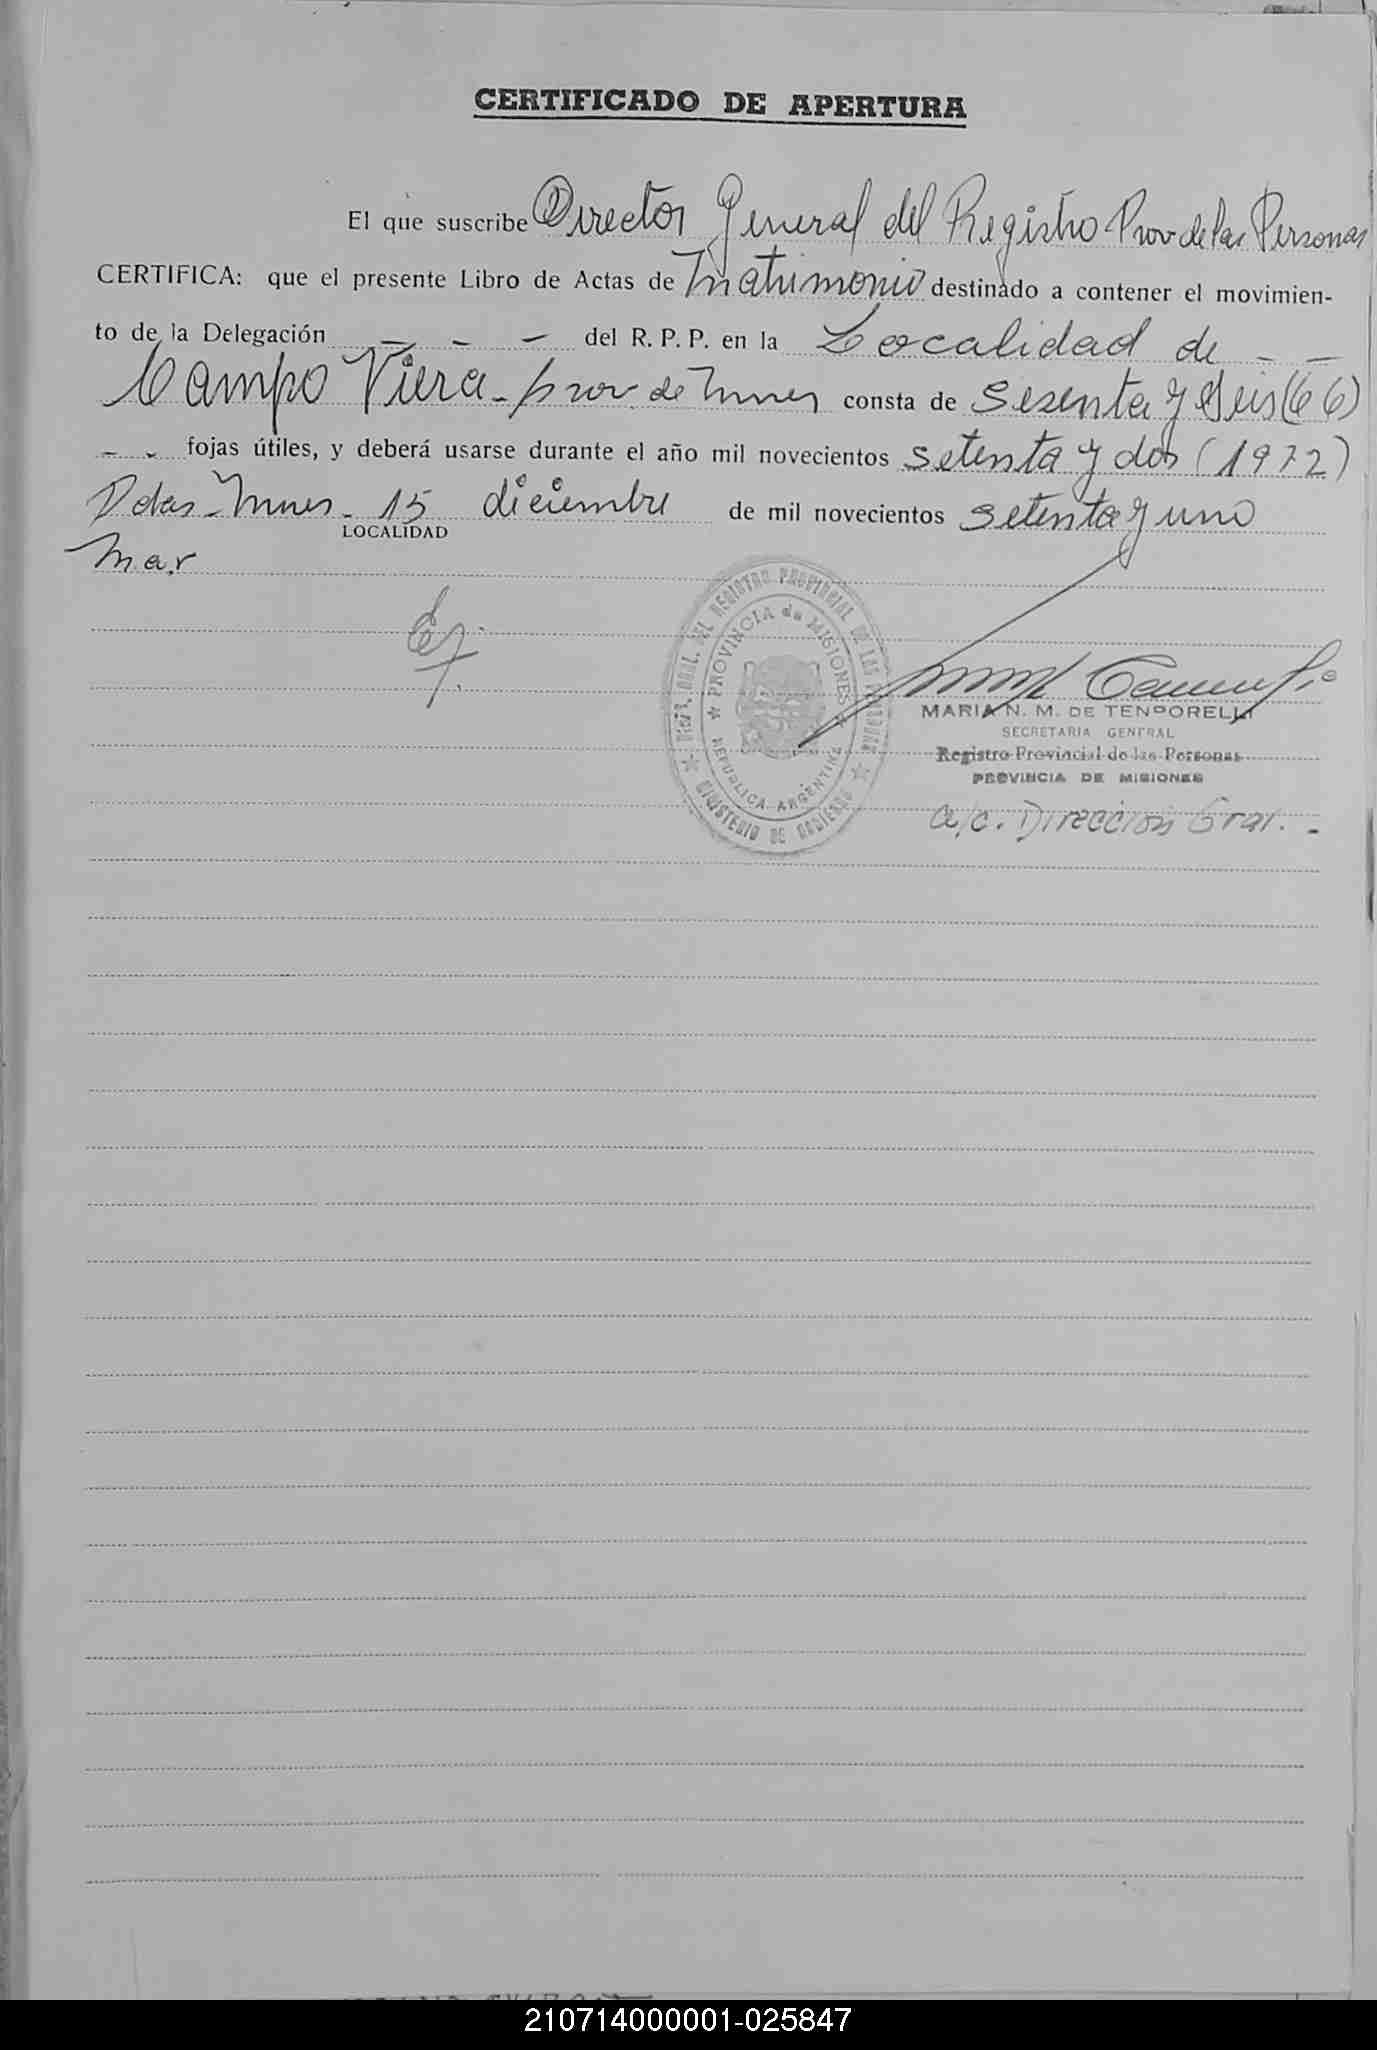 CERTIFICADO DE APERTURA
El que suscribe Director General del Registro Prov de las Personas
CERTIFICA: que el presente Libro de Actas de Matrimonio destinado a contener el movimien-
to de la Delegación _ _ _ del R. P. P. en la Localidad de _ _
Campo Viera - prov. de Mnes consta de Sesenta y Seis (66)
_ _ fojas útiles, y deberá usarse durante el año mil novecientos setenta y dos (1972)
Pdas - Mnes - 15 diciembre de mil novecientos setenta y uno
LOCALIDAD
mar
DIREC. GRAL. DEL REGISTRO PROVINCIAL DE LAS PERSONAS
PROVINCIA de MISIONES
REPUBLICA ARGENTINA
MINISTERIO DE GOBIERNO
MARIA N. M. DE TEMPORELLI
SECRETARIA GENERAL
Registro Provincial de las Personas
PROVINCIA DE MISIONES
a/c. Dirección Gral. -
210714000001-025847